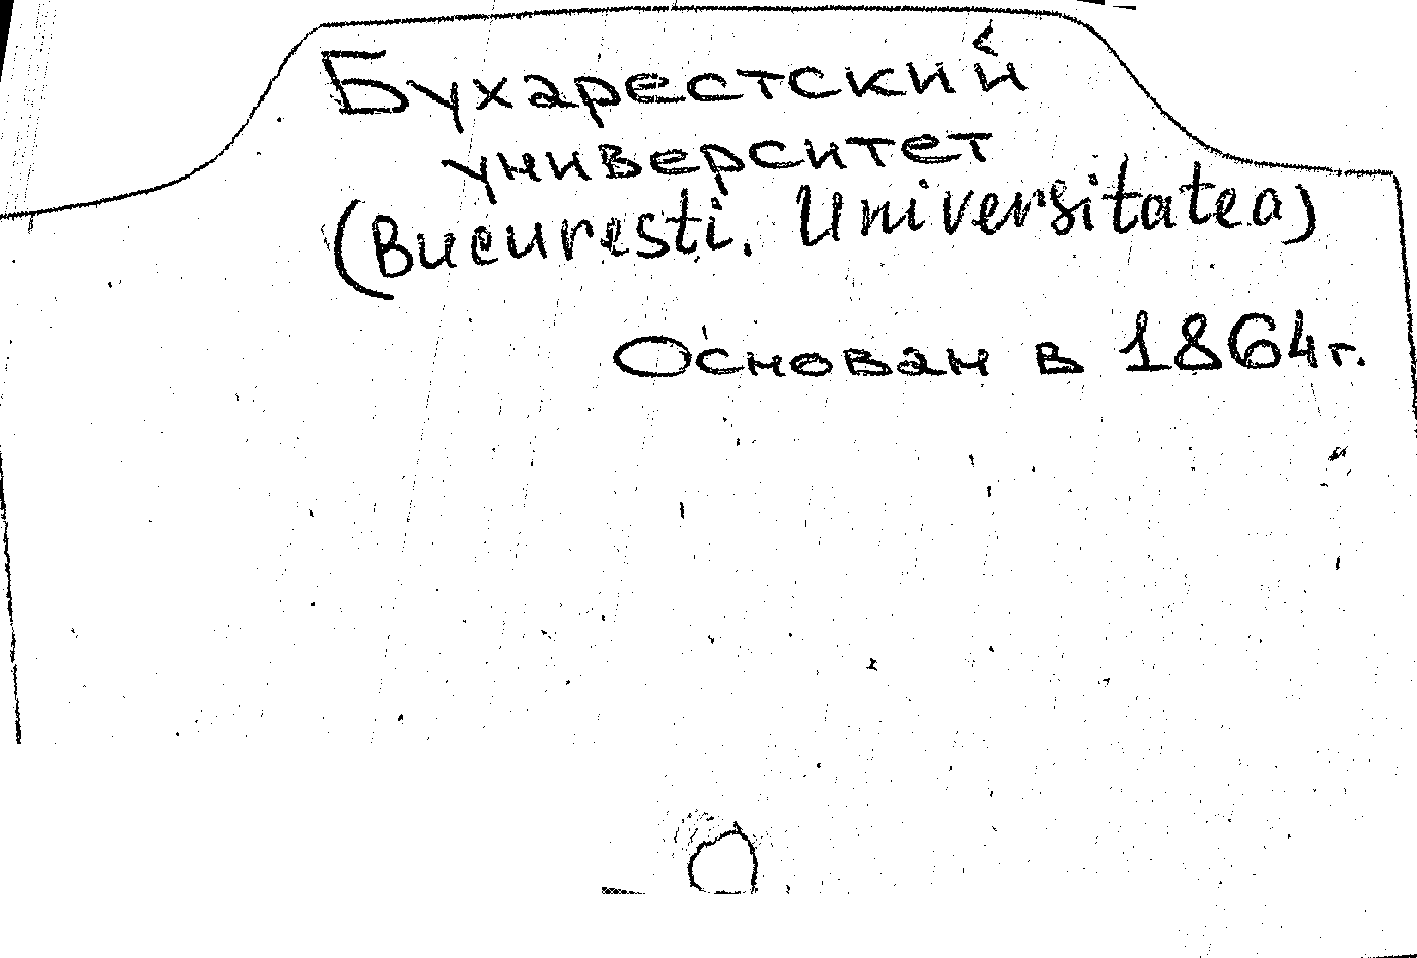 Бухарестский
университет
(Bucuresti. Universitatea)
Основан в 1864г.